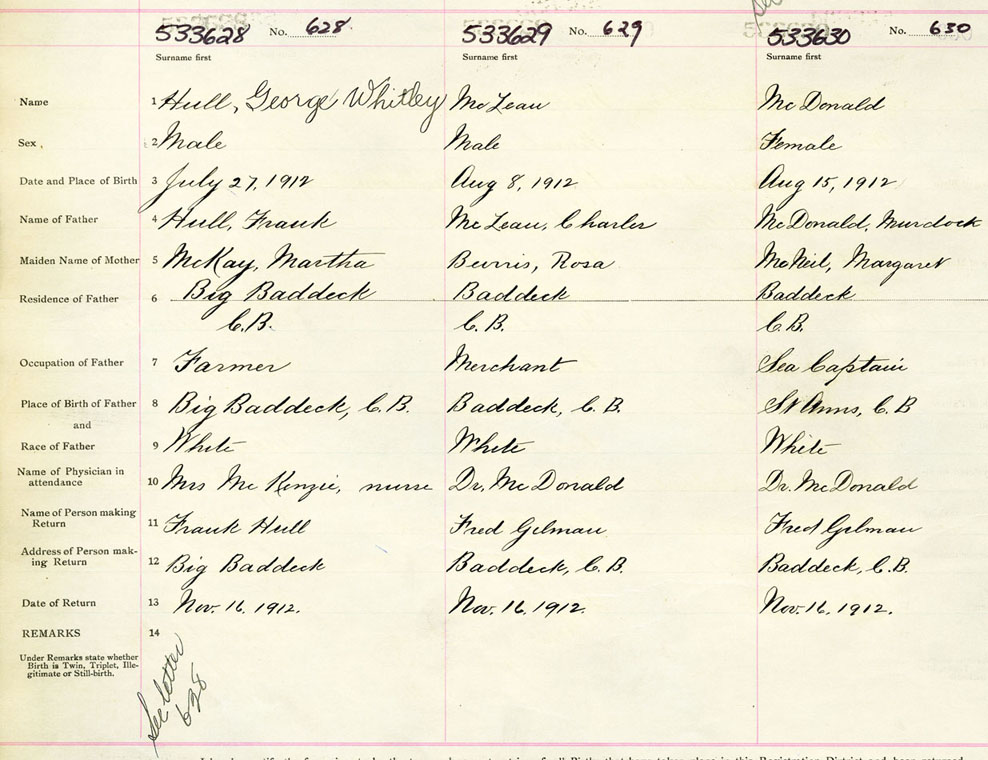 533628 No. 628. 533629 No. 629 533630 No. 630
Surname first Surname first Surname first
Name 1 Hull, George Whitley McLean McDonald
Sex. 2 Male Male Female
Date and Place of Birth 3 July 27, 1912 Aug 8, 1912 Aug 15, 1912
Name of Father 4 Hull, Frank McLean, Charles McDonald, Murdock
Maiden Name of Mother 5 McKay, Martha Burris, Rosa McNeil, Margaret
Residence of Father 6 Big Baddeck Baddeck Baddeck
C.B. C.B. C.B.
Occupation of Father 7 Farmer Merchant Sea Captain
Place of Birth of Father 8 Big Baddeck, C.B. Baddeck, C.B. St Anns, C.B
and
Race of Father 9 White White White
Name of Physician in
attendance 10 Mrs McKenzie, nurse Dr. McDonald Dr. McDonald
Name of Person making
Return 11 Frank Hull Fred Gilman Fred Gilman
Address of Person mak-
ing Return 12 Big Baddeck Baddeck, C.B. Baddeck, C.B.
Date of Return 13 Nov. 16, 1912. Nov. 16, 1912. Nov. 16, 1912.
REMARKS 14
Under Remarks state whether
Birth is Twin, Triplet, Ille-
gitimate or Still-birth.
See letter
628